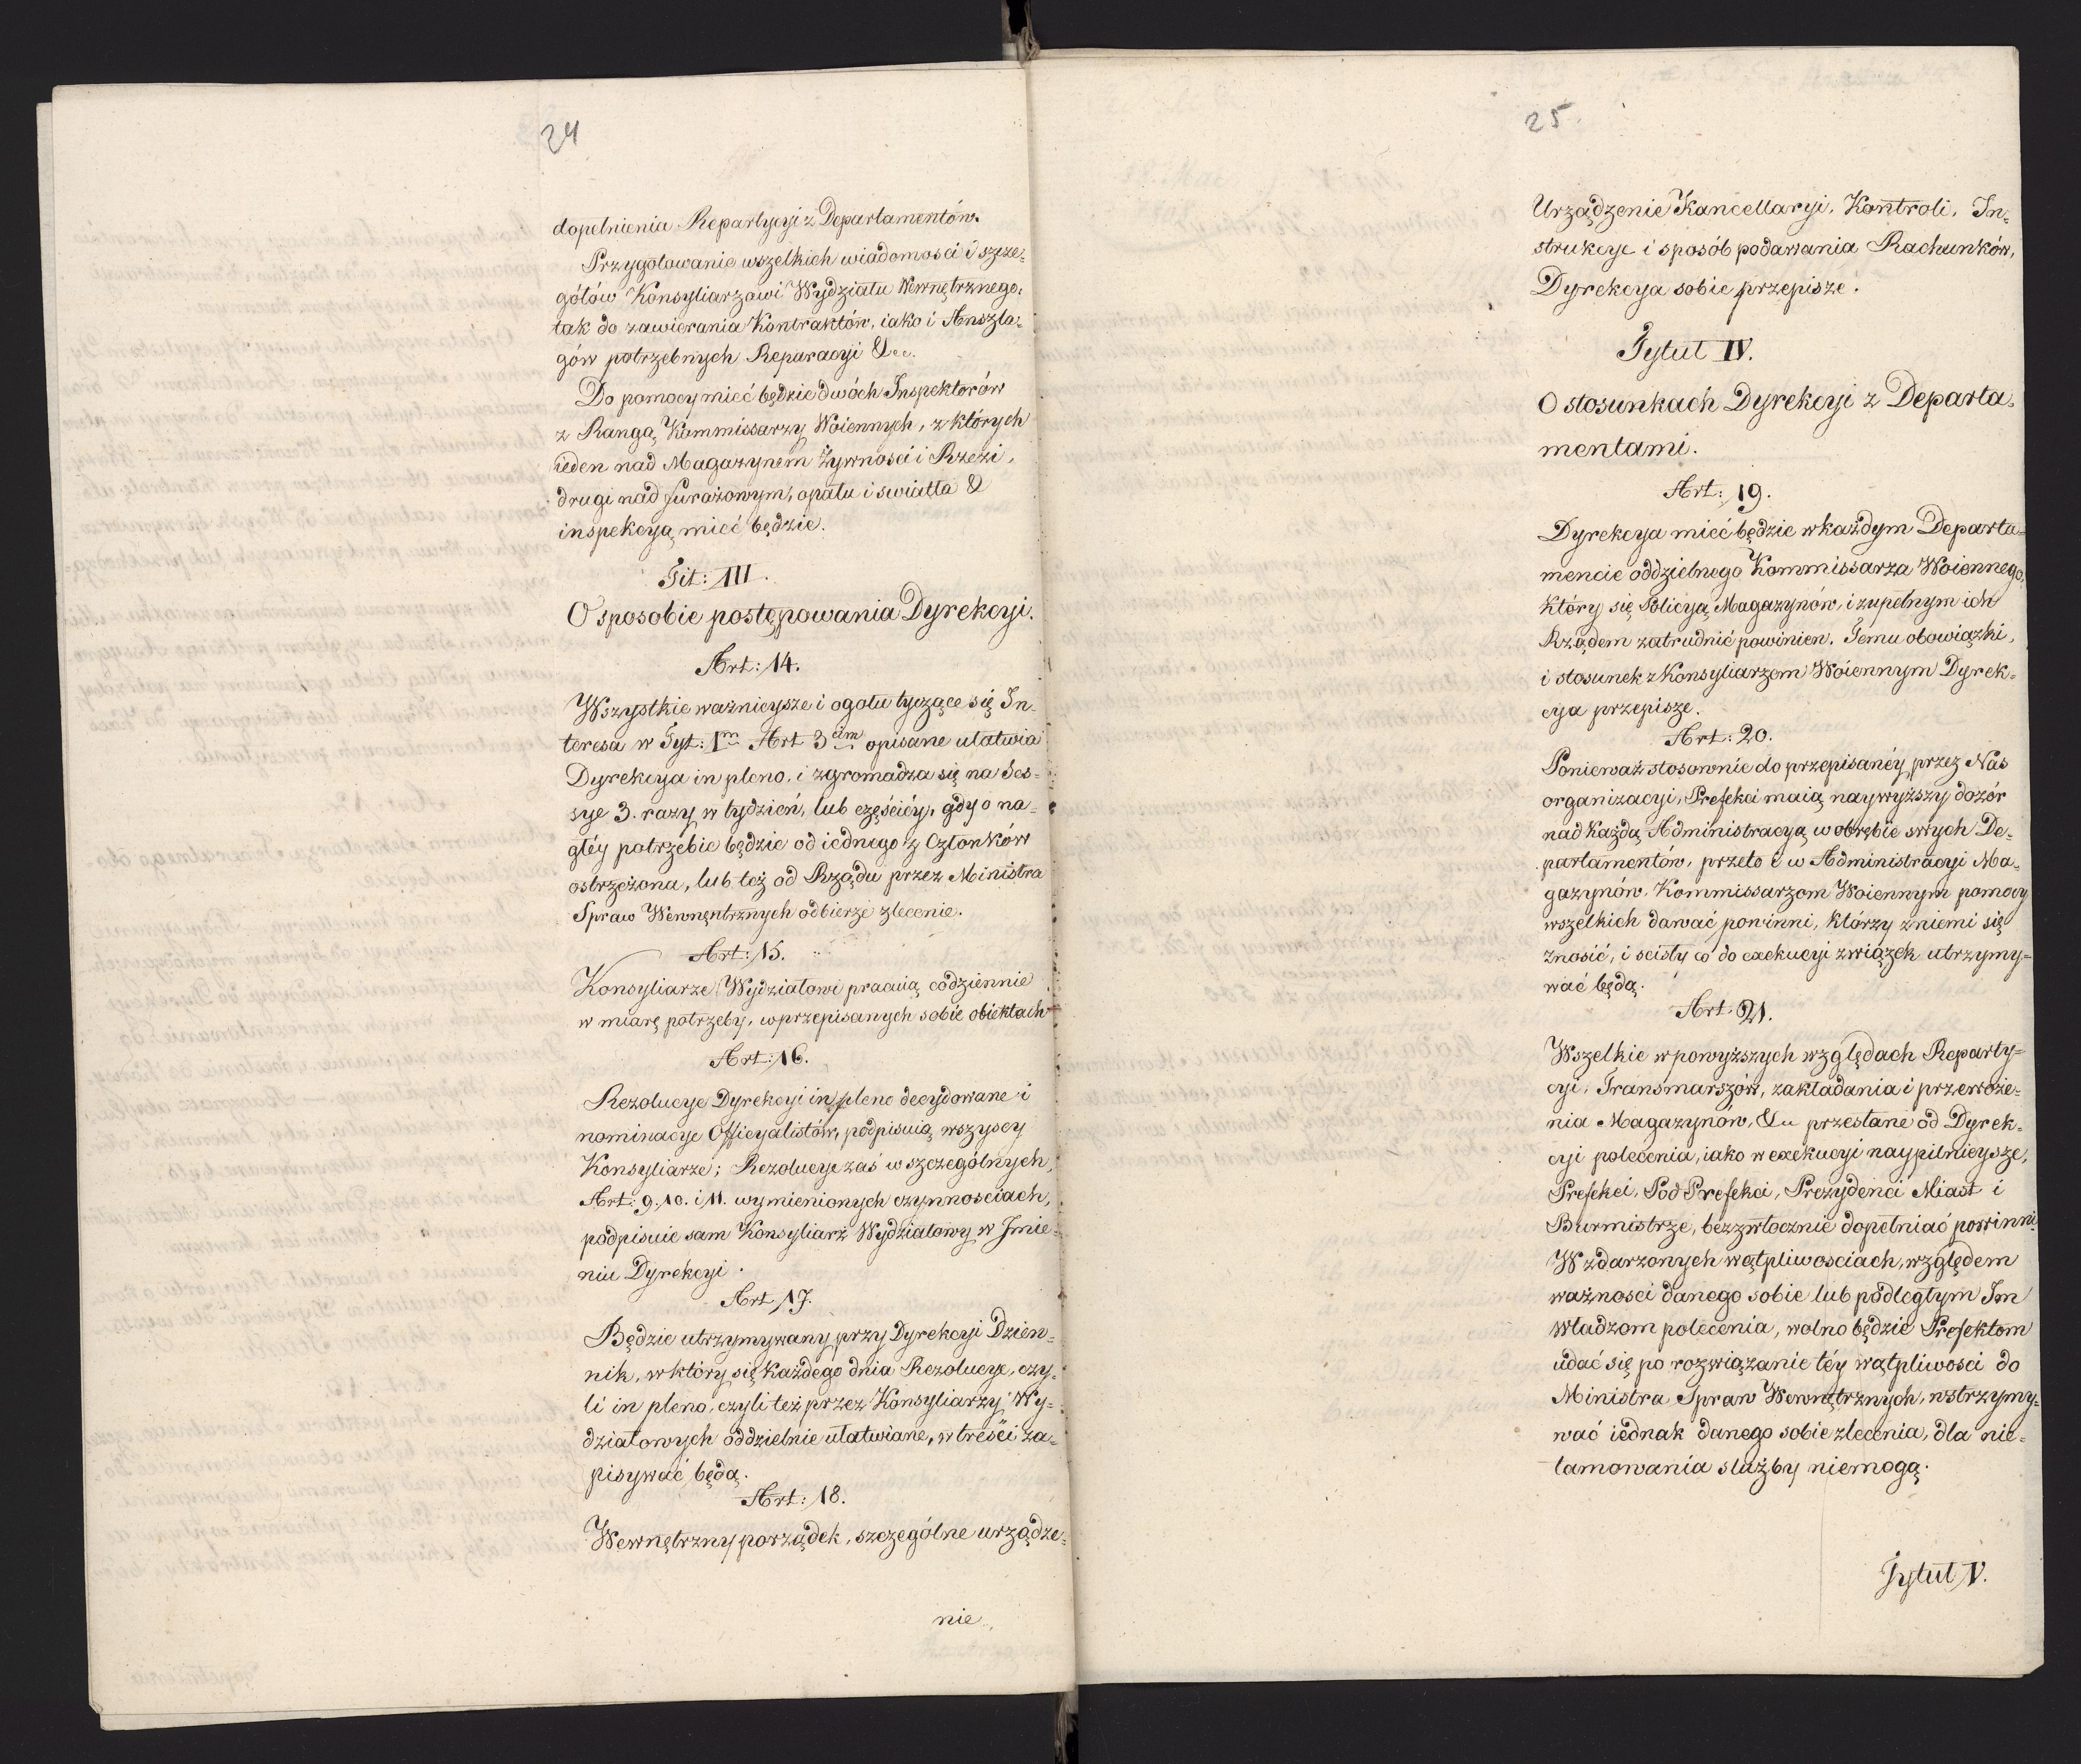 24
dopełnienia Repartycyi z Departamentów.
Przygotowanie wszelkich wiadomosci i szcze-
gółów Konsyliarzowi Wydziału Wewnętrznego:
tak do zawierania Kontraktów, iako i Anszla-
gów potrzebnych Reparacyi &cc.
Do pomocy mieć będzie dwóch Inspektorów
z Rangą Kommissarzy Woiennych, z których
ieden nad Magazynem Żywnosci i Rzezi,
drugi nad furażowym, opału i swiatła &
inspekcyą mieć będzie.
Tit: III.
O sposobie postępowania Dyrekcyi.
Art: 14.
Wszystkie ważnieysze i ogołu tyczące się In-
teresa w Tyt: I^m Art 3^cim opisane ułatwia
Dyrekcya in pleno, i zgromadza się na Ses-
sye 3. razy w tydzień, lub częściéy, gdy o na-
głéy potrzebie będzie od iednego z Członków
ostrzeżona, lub też od Rządu przez Ministra
Spraw Wewnęntrznych odbierze zlecenie.
Art: 15.
Konsyliarze Wydziałowi pracuią codziennie
w miarę potrzeby, w przepisanych sobie obiektach
Art: 16.
Rezolucye Dyrekcyi in pleno decydowane i
nominacye Officyalistów, podpisuią wszyscy
Konsyliarze; Rezolucye zaś w szczególnych,
Art: 9. 10. i 11. wymienionych czynnosciach,
podpisuie sam Konsyliarz Wydziałowy w Jmie-
niu Dyrekcyi.
Art 17.
Będzie utrzymywany przy Dyrekcyi Dzien-
nik, w który się każdego dnia Rezolucye, czy-
li in pleno, czyli też przez Konsyliarzy Wy-
działowych oddzielnie ułatwiane, w treści za-
pisywać będą.
Art: 18.
Wewnętrzny porządek, szczególne urządze-
nie
25.
Urządzenie Kancellaryi, Kontroli, In-
strukcye i sposób podawania Rachunków,
Dyrekcya sobie przepisze.
Tytuł IV.
O stosunkach Dyrekcyi z Departa-
mentami.
Art: 19.
Dyrekcya mieć będzie w każdym Departa-
mencie oddzielnego Kommissarza Woiennego,
który się Policyą Magazynów, i zupełnym ich
Rządem zatrudnić powinien. Temu obowiązki,
i stosunek z Konsyliarzem Woiennym Dyrek-
cya przepisze.
Art: 20.
Ponieważ stosownie do przepisanéy przez Nas
organizacyi, Prefekci maią naywyższy dozór
nad każdą Administracyą w obrębie swych De-
partamentów, przeto i w Administracyi Ma-
gazynów, Kommissarzom Woiennym pomocy
wszelkich dawać powinni, którzy z niemi się
znosić, i scisły co do exekucyi związek utrzymy-
wać będą.
Art. 21.
Wszelkie w powyższych względach Reparty-
cyi, Transmarszów, zakładania i przewoże-
nia Magazynów, &cc przesłane od Dyrek-
cyi polecenia, iako w exekucyi naypilnieysze,
Prefekci, Pod Prefekci, Prezydenci Miast i
Burmistrze, bezzwłocznie dopełniać powinni.
W zdarzonych wątpliwosciach, względem
ważnosci danego sobie lub podległym Im
Władzom polecenia, wolno będzie Prefektom
udać się po rozwiązanie téy wątpliwosci do
Ministra Spraw Wewnętrznych, wstrzymy-
wać iednak danego sobie zlecenia, dla nie-
tamowania służby niemogą.
Tytuł V.